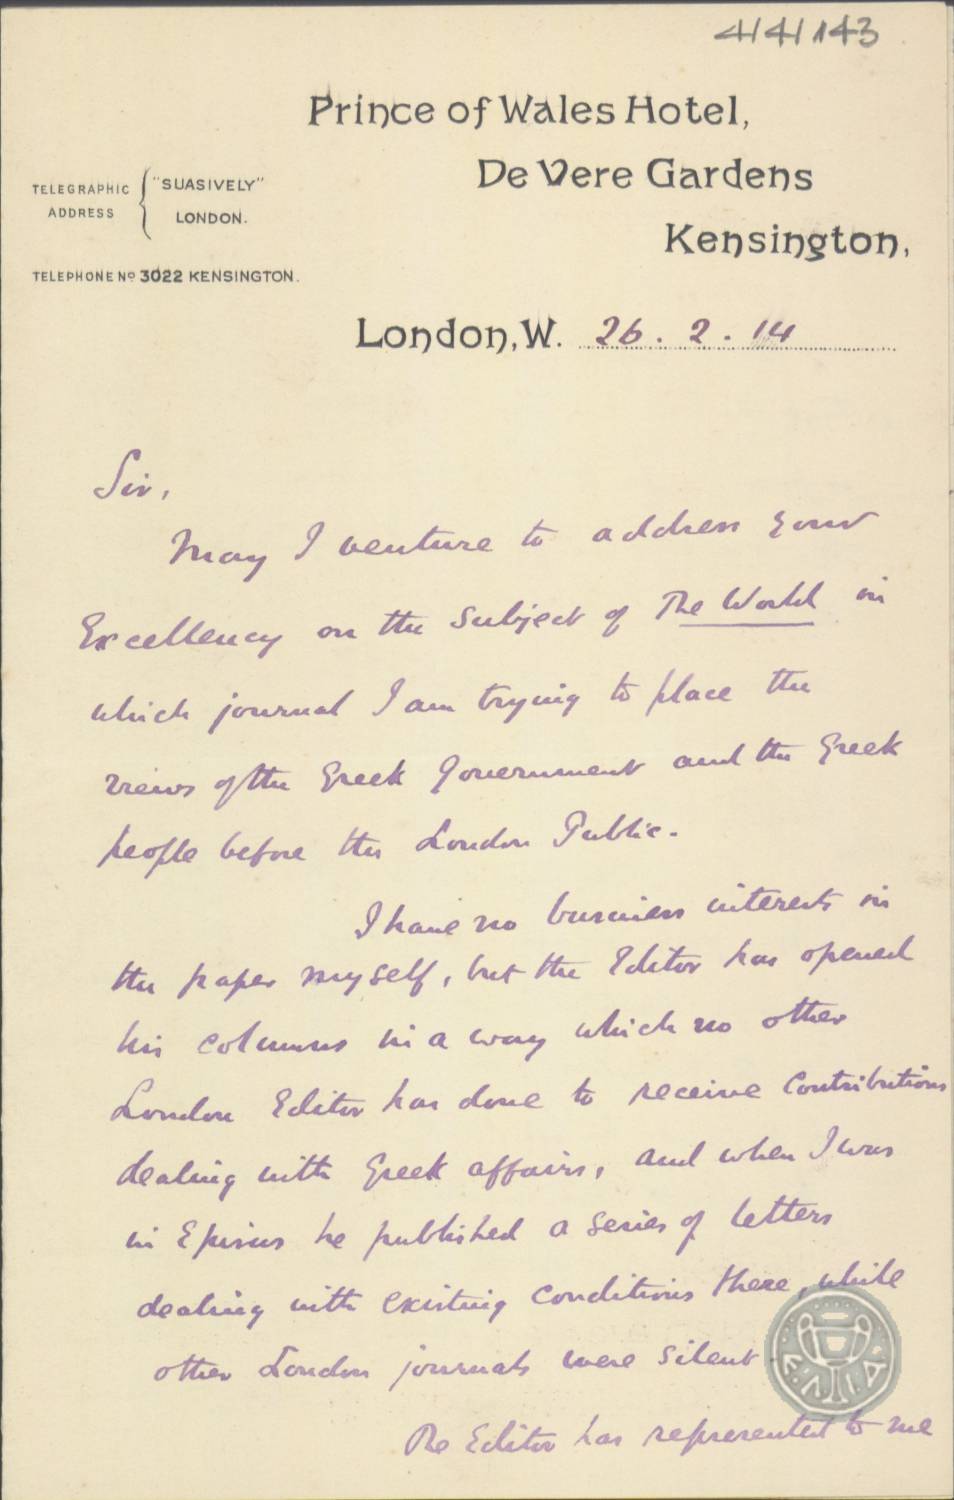 4/4/143
Prince of Wales Hotel,
De Vere Gardens
Kensington,
TELEGRAPHIC ADDRESS { "SUASIVELY" LONDON.
TELEPHONE No 3022 KENSINGTON.
London, W. 26 . 2 . 14
Sir,
May I venture to address your
Excellency on the subject of The World in
which journal I am trying to place the
views of the Greek Government and the Greek
people before the London Public.
I have no business interests in
the paper myself, but the Editor has opened
his columns in a way which no other
London Editor has done to receive contributions
dealing with Greek affairs, and when I was
in Epirus he published a series of letters
dealing with existing conditions there, while
other London journals were silent
The Editor has represented to me